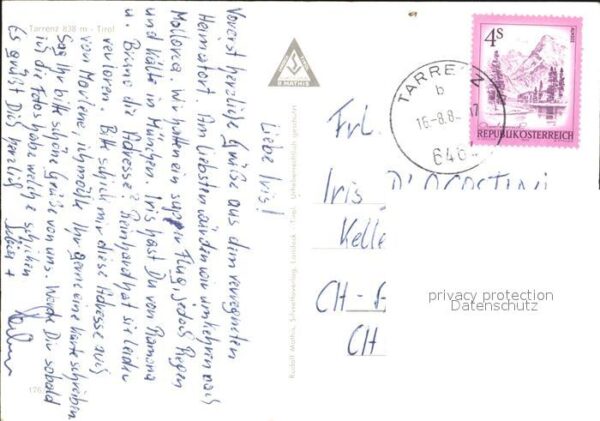 Tarrenz 838 m - Tirol
Liebe Iris!
Vorerst herzliche Grüße aus dem verregneten
Heimatort. Am liebsten würden wir umkehren nach
Mallorca. Wir hatten ein super Flug, jedoch Regen
und Kälte in München. Iris hast Du von Ramona
u. Bruno die Adresse? Reinhard hat sie leider
verloren. Bitte schick mir diese Adresse auch
von Marlene, ich möchte Ihr gerne eine Karte schreiben.
Sag Ihr bitte schöne Grüße von uns. Werde Dir sobald
ich die Fotos habe welche schicken
Es grüßt Dich herzlich
176
R MATHIS
Rudolf Mathis, Silvrettaverlag, Landeck - Tirol
4S
REPUBLIK ÖSTERREICH
TARRENZ
b
16-8.8
646
Frl.
Iris D'AGOSTINI
Kelle
CH-
CH
privacy protection
Datenschutz